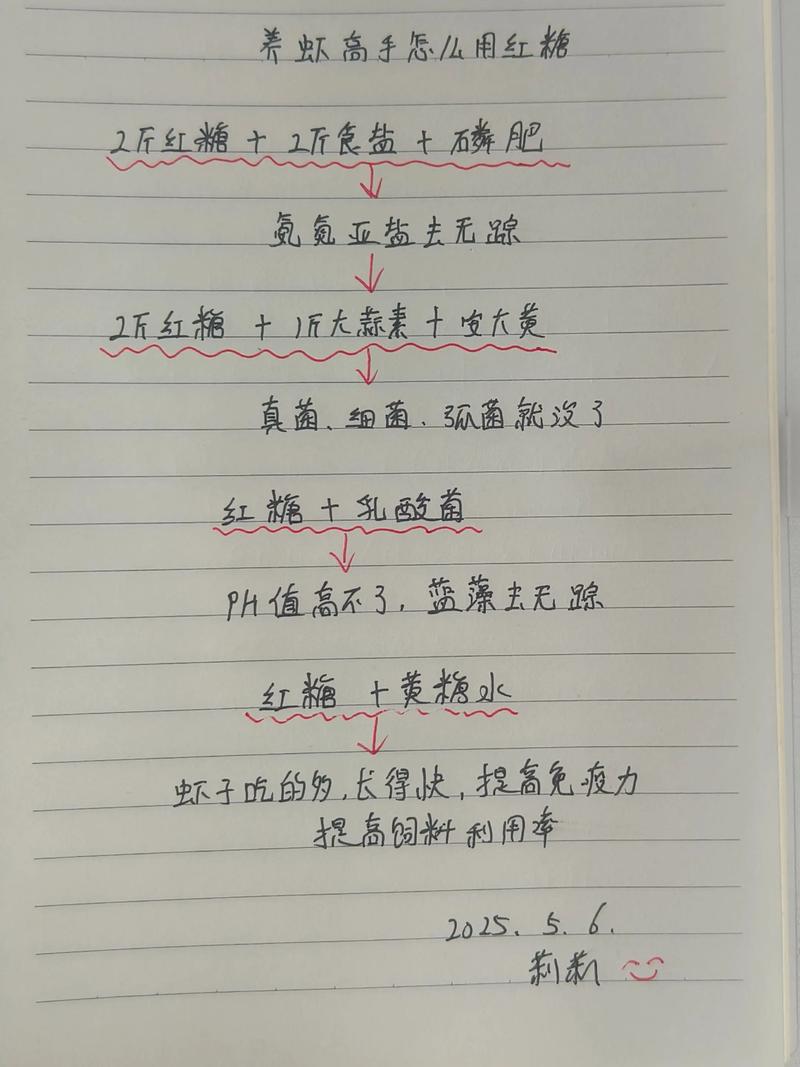 养虾高手怎么用红糖
2斤红糖 + 2斤食盐 + 磷肥
氨氮亚盐去无踪
2斤红糖 + 1斤大蒜素 + 安大黄
真菌、细菌、弧菌就没了
红糖 + 乳酸菌
PH值高不了，蓝藻去无踪
红糖 + 黄糖水
虾子吃的多，长得快，提高免疫力
提高饲料利用率
2025.5.6.